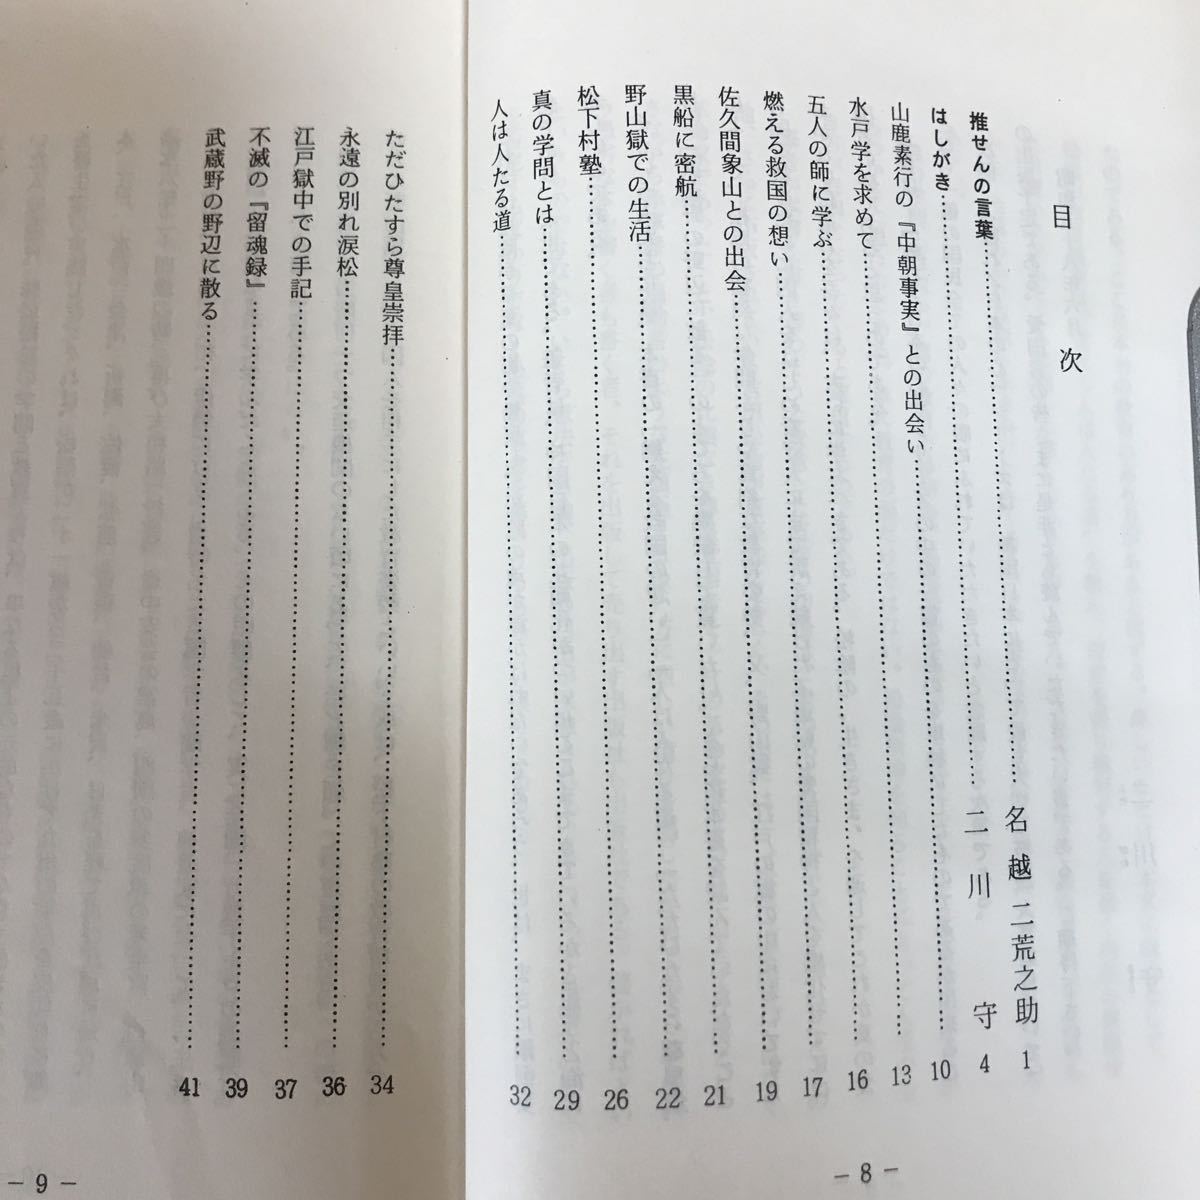 目次
推せんの言葉……名越二荒之助 1
はしがき……二川守 4
山鹿素行の『中朝事実』との出会い……10
水戸学を求めて……13
五人の師に学ぶ……16
燃える救国の想い……17
佐久間象山との出会……19
黒船に密航……21
野山獄での生活……22
松下村塾……26
真の学問とは……29
人は人たる道……32
－8－
ただひたすら尊皇崇拝……34
永遠の別れ涙松……36
江戸獄中での手記……37
不滅の『留魂録』……39
武蔵野の野辺に散る……41
－9－